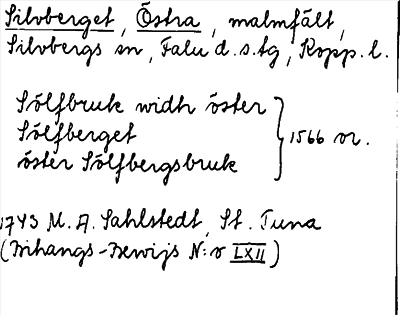 Silvberget, Östra, malmfält,
Silvbergs sn, Falu d. s. tg, Kopp. l.
Sölfbruk widh öster
Sölfberget
öster Sölfbergsbruk
1566 or.
1743 M. A. Sahlstedt, St. Tuna
(Bihangs-Bewijs N:o LXII)